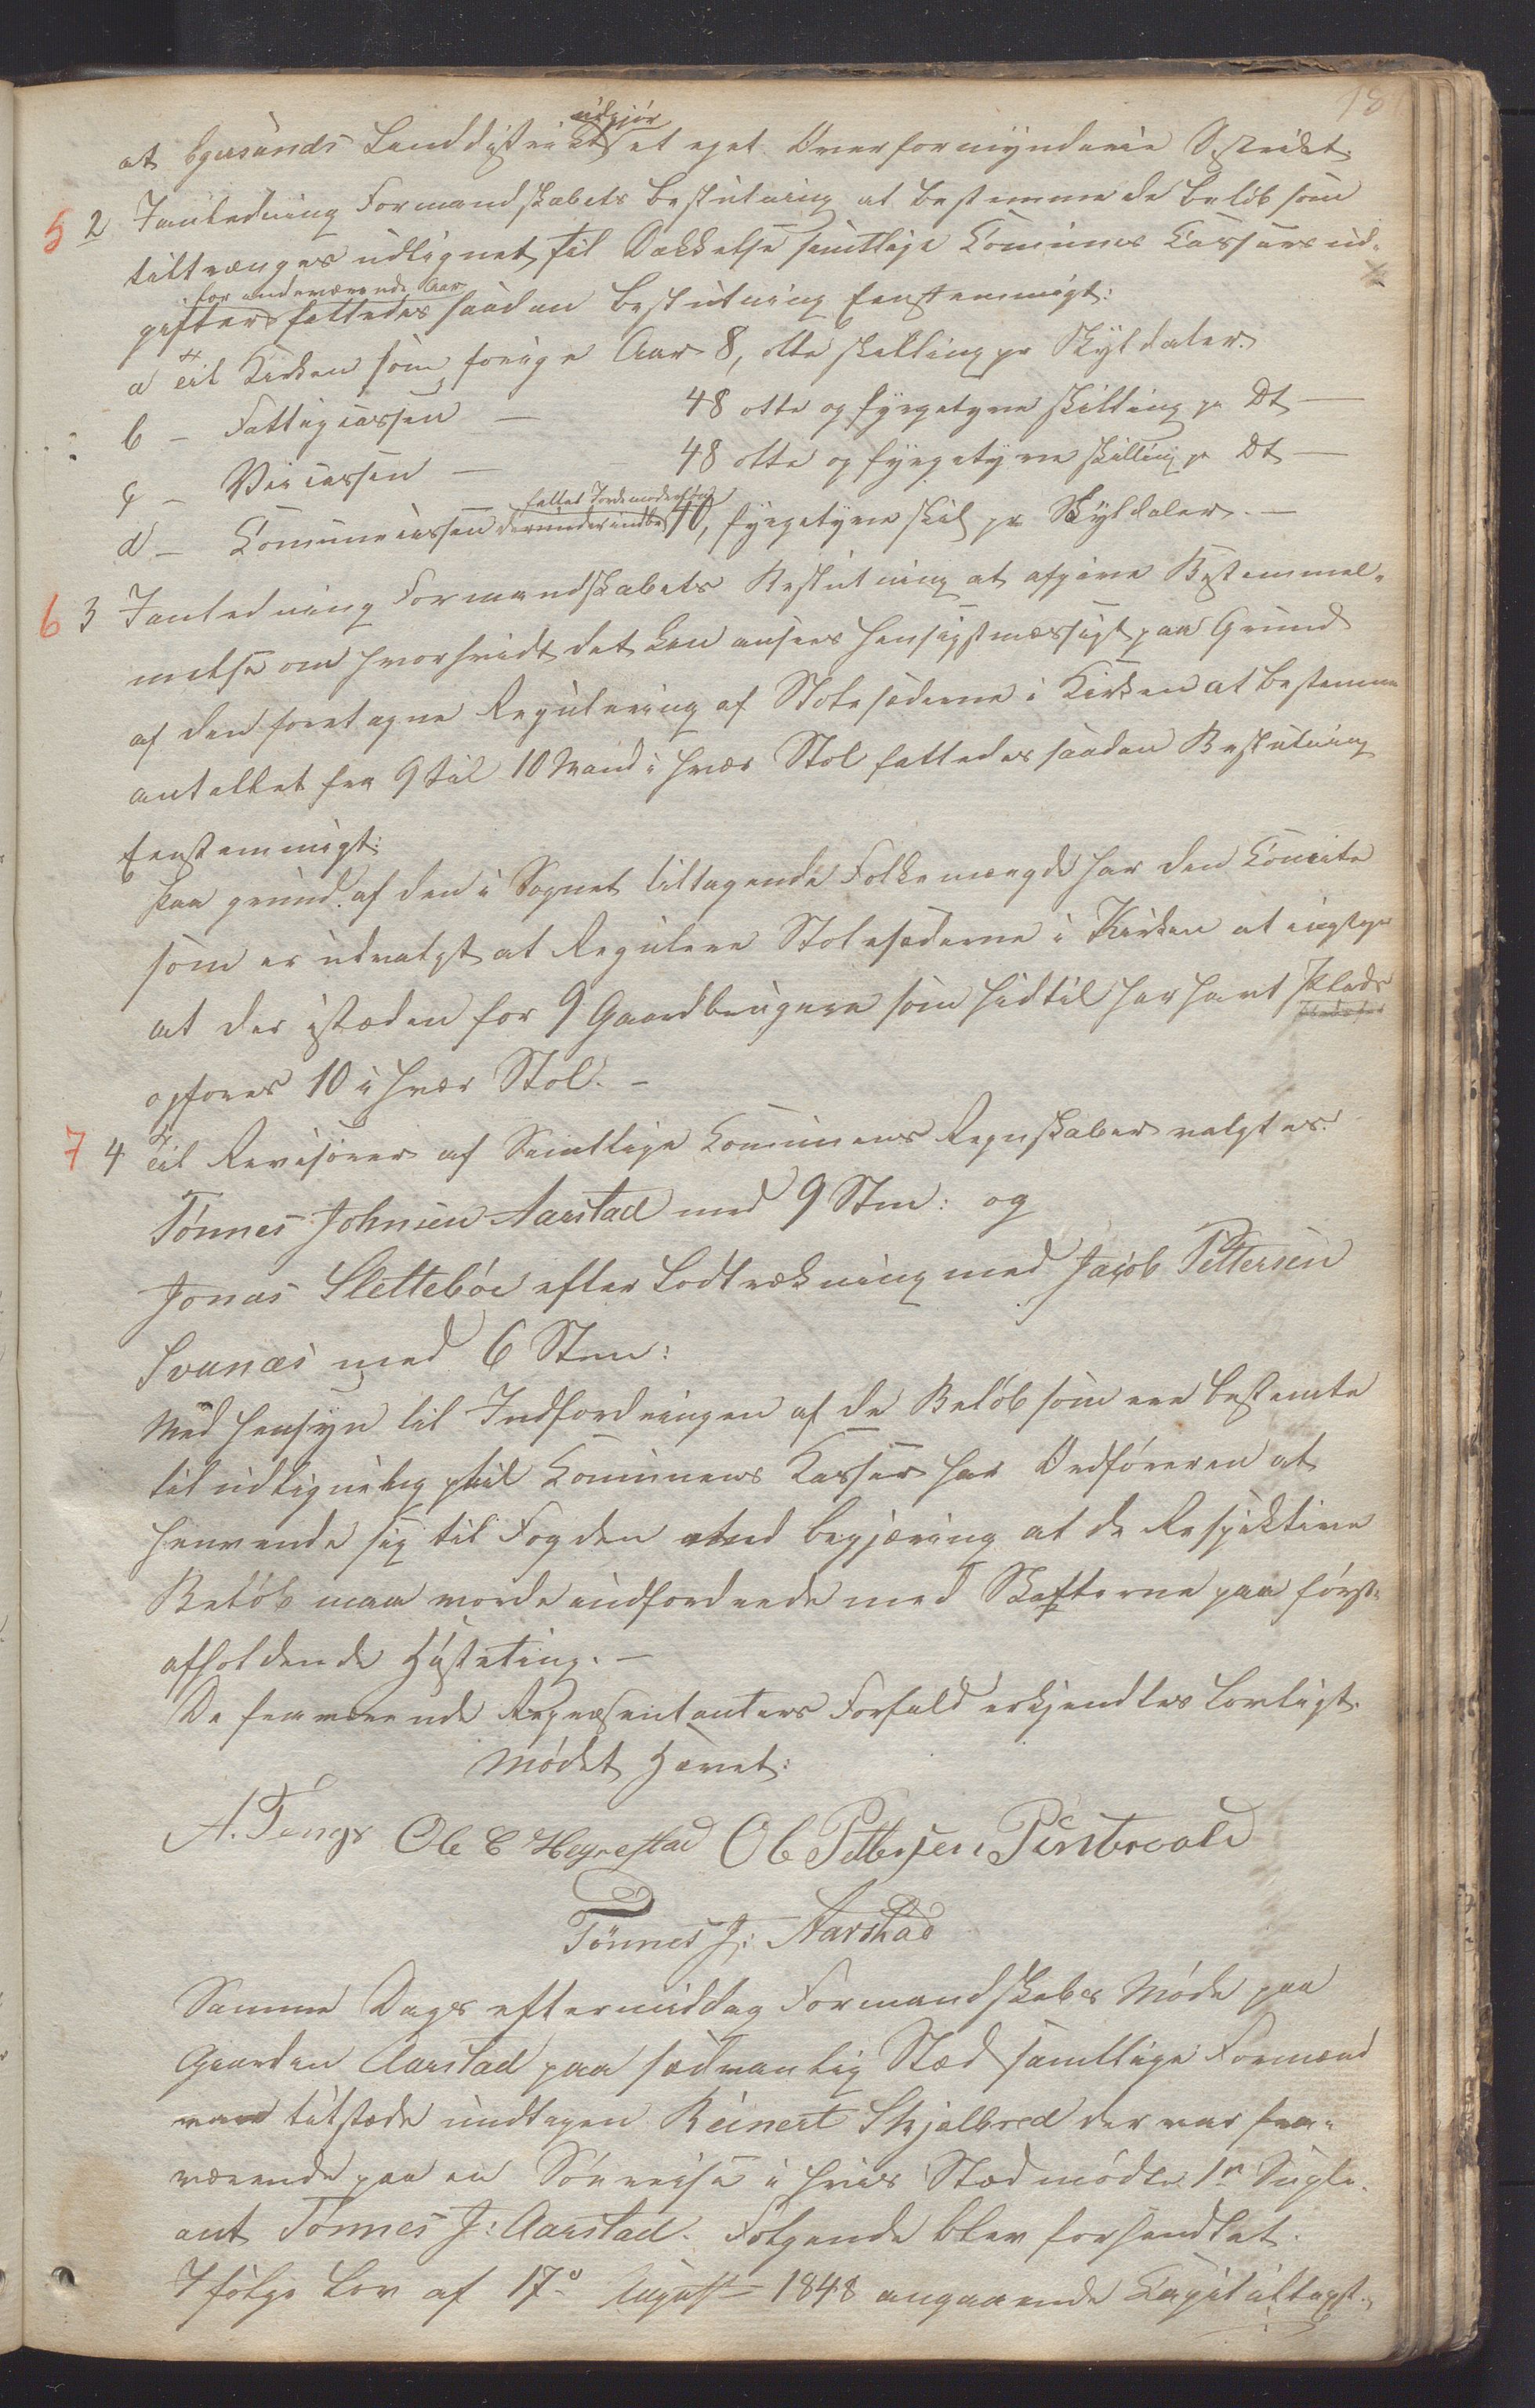 18
udgjør
at Egersunds Landdistrikt et eget Overformynderie Distrikt.
5 2 Ianledning Formandskabets Beslutning at bestemme de beløb som
tiltrænges udlignet til Dækkelse samtlige Comunes Cassers ud-
for indeværende Aar
gifter fattedes saadan Beslutning Eenstemmigt:
a Til Kirken som forrige Aar 8, otte skilling pr Skyldaler.
b – Fattigcassen – 48 otte og fyrgetyve skilling pr Dt –
c – Veicassen – 48 otte og fyrgetyve skilling pr Dt –
fattes Jordemoderhjælp
d – Comunecassen derunder indbe 40, fyrgetyve skil pr Skyldaler. –
6 3 Ianledning Formandskabets Beslutning at afgive Bestemmel-
melse om hvorhvidt det kan ansees hensigtmæssigt paa Grund
af den foretagne Regulering af Stolesæderne i Kirken at bestemme
antallet fra 9 til 10 Mand i hver Stol fattedes saadan Beslutning
Eenstemmigt:
Paa grund af den i Sognet tiltagende Folkemængde har den Comite
som er udvalgt at Regulere Stolesæderne i Kirken at iagtage
at der istæden for 9 Gaardbrugere som hidtil har havt Plads
opføres 10 i hver Stol. –
7 4 Til Revisorer af Samtlige Comunens Regnskaber valgtes.
Tønnes Johnsen Aarstad med 9 Stm: og
Jonas Slettebøe efter Lodtrækning med Jacob Pettersen
Svanæs med 6 Stm:
Med Hensyn til Indfordringen af de Beløb som ere bestemte
til udligning til Comunens Kasser har Ordføreren at
henvende sig til Fogden med begjæring at de Respektive
Beløb maa vorde indfordrede med Skatterne paa først-
afholdende Høsteting. –
De fraværende Repræsentanters Forfald erkjendtes Lovligt.
Mødet Hævet:
A. Tengs Ole C Hegrestad Ole Pettersen Puntervold
Tønnes J: Aarstad
Samme Dags eftermiddag Formandskabes Møde paa
Gaarden Aarstad paa sædvanlig Stæd samtlige Formænd
var tilstæde undtagen Reinert Skjelbred der var fra-
værende paa en Søereise i hvis Stæd mødte 1n Suple-
ant Tønnes J: Aarstad. Følgende blev forhandlet.
Ifølge Lov af 17de August 1848 angaaende